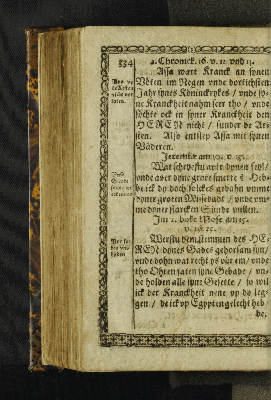 534
2. Chronick. 16. v. 12 vnd 13.
Assa wart Kranck an synen
Vöten im Negen vnde dortichsten
Jahr synes Köninckrykes / vnde sy-
ne Kranckheit nahm seer tho / vnde
söchte ock in syner Kranckheit den
HEREN nicht / sunder de Ar-
sten. Also entslep Assa mit synen
Väderen.
Jeremiæ am 30. v.
Wat schryestu auer dynen
vnde auer dyne grote smerte? Heb-
be ick dy doch solckes gedahn vmme
dyner groten Missedadt / vnde vm-
me dyner starcken Sünde willen.
Im 2. boke Mose am 15.
v. 26.
Werstu dem stemmen des HE-
REN dynes Gades gehorsam syn/
vnde dohn wat recht ys vör em / vnde
tho Ohren faten syne Gebade / vn-
de holden alle syne Gesette / so wil
ick der Kranckheit nene vp dy leg-
gen / de ick vp Egypten gelecht heb-
be.